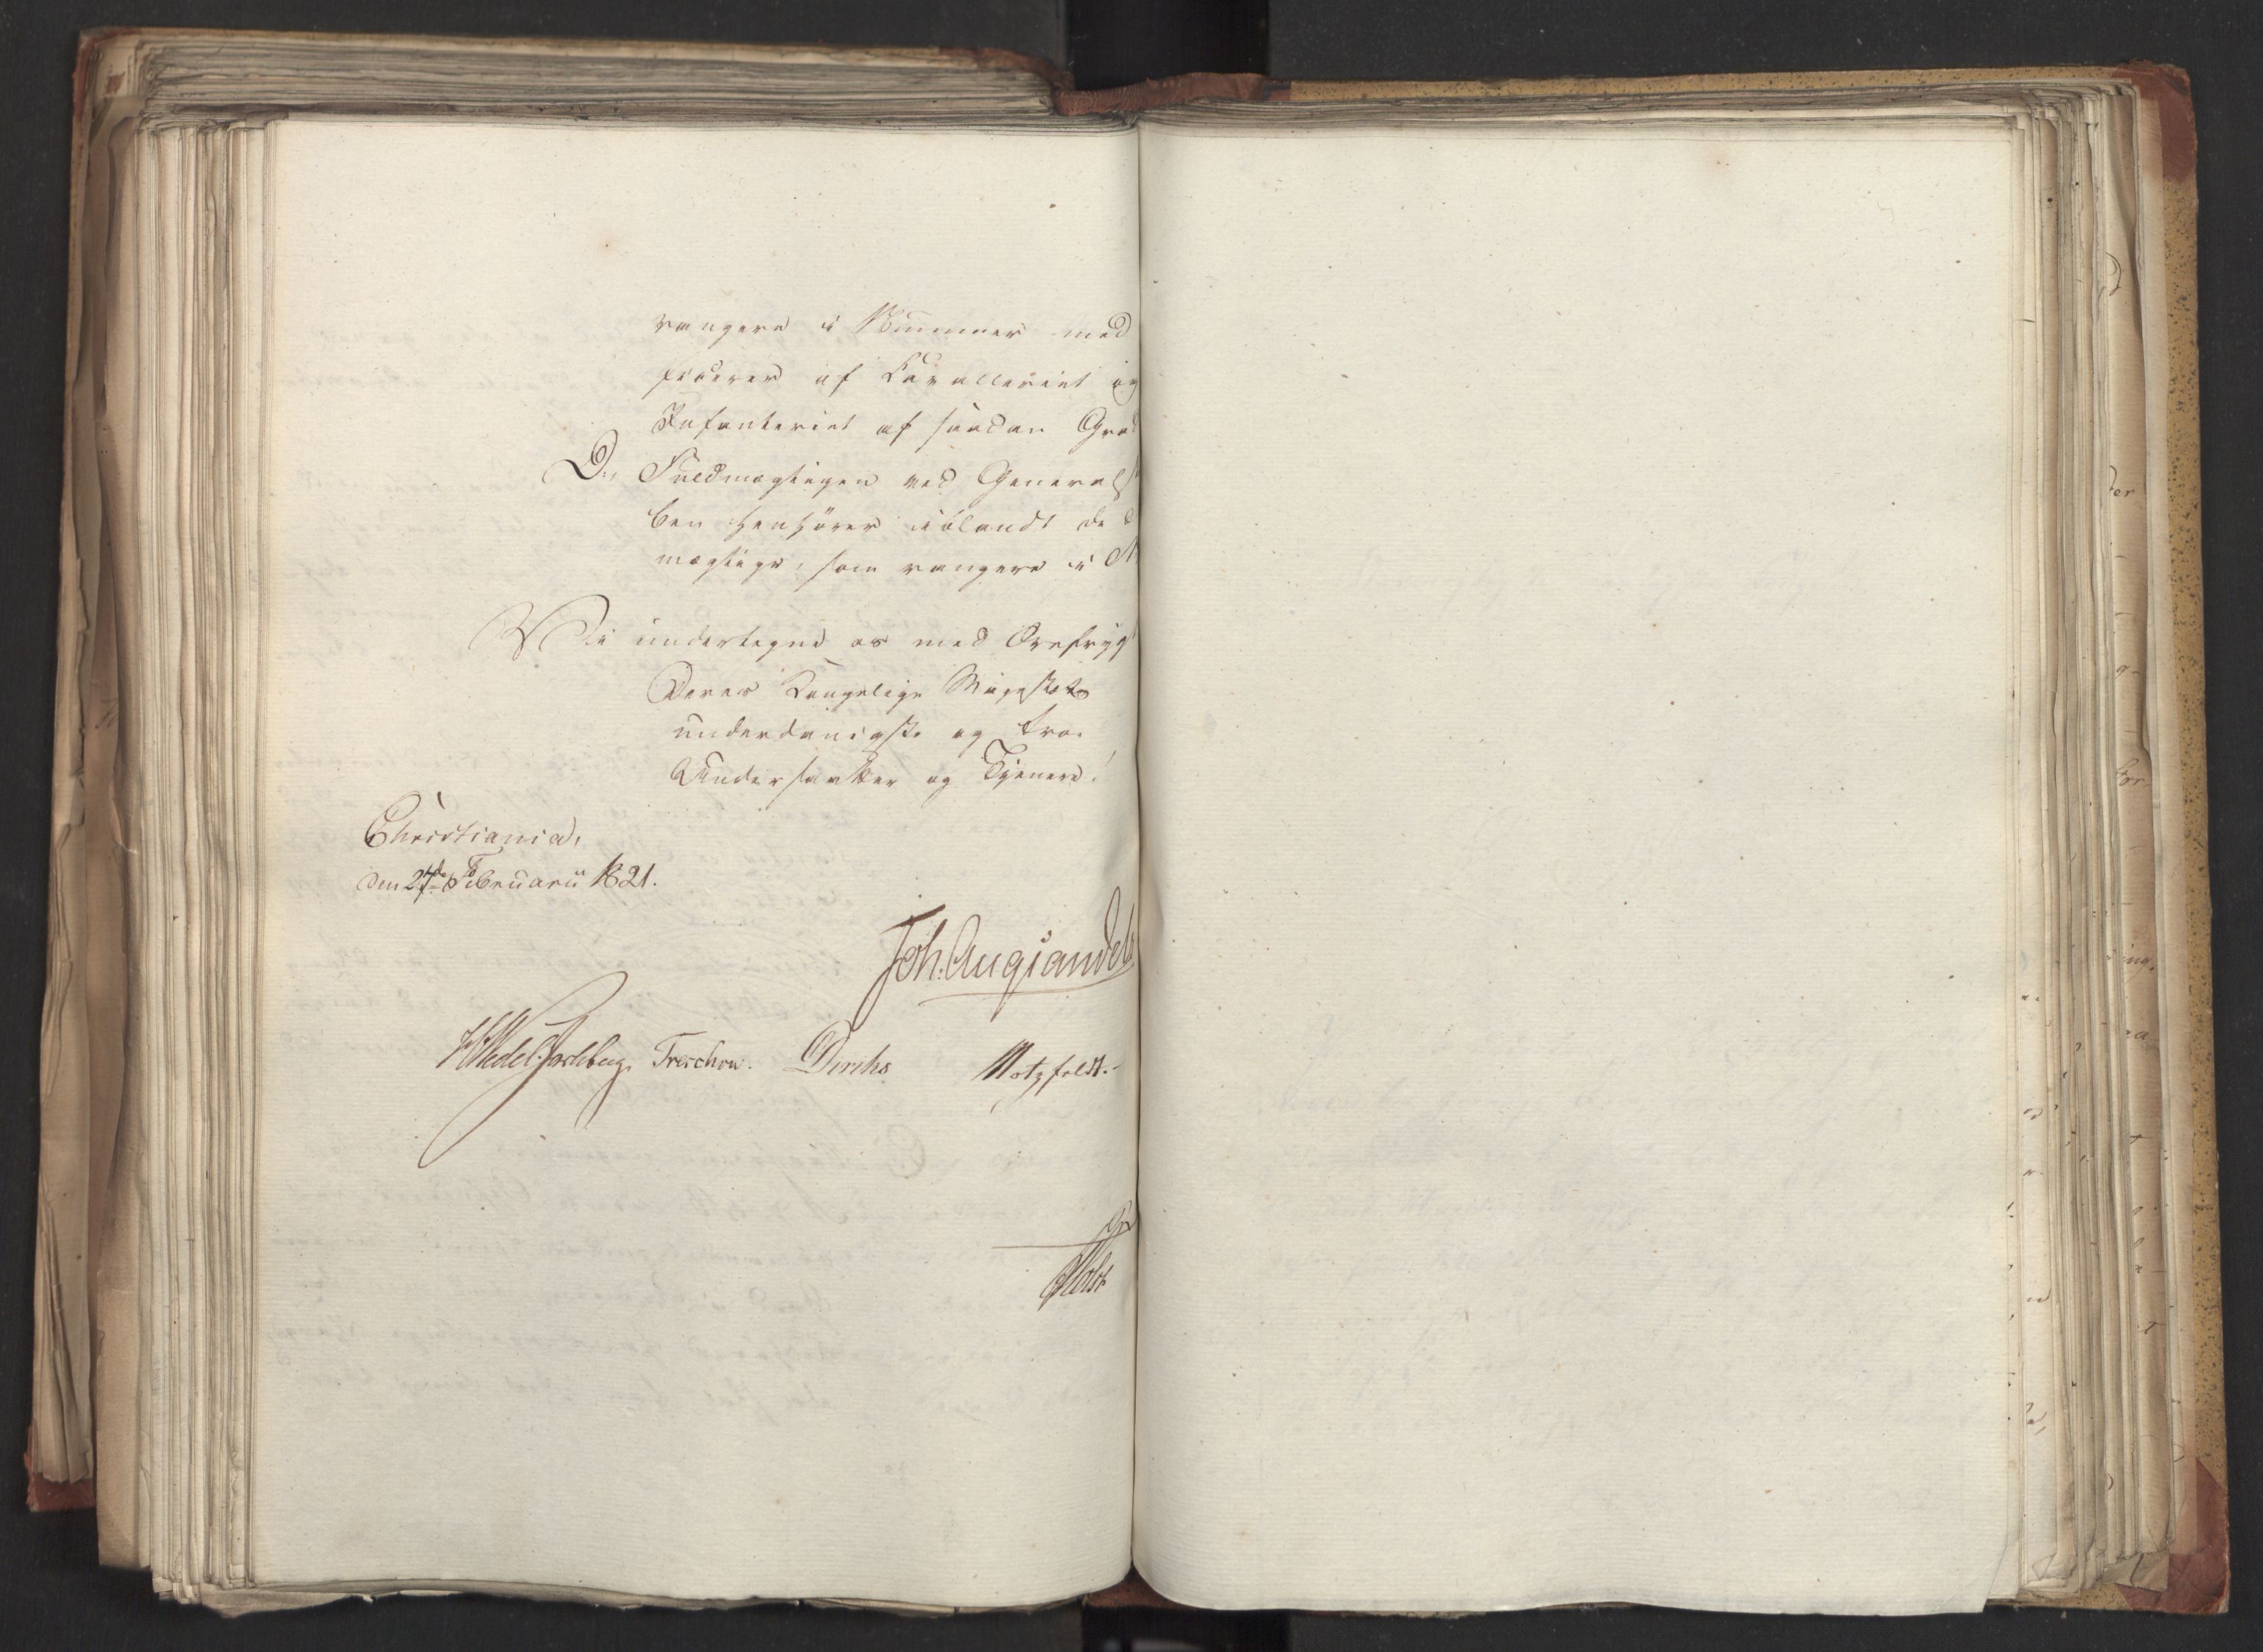 rangere i Nummer med
ficerer af Cavalleriet og
Infanteriet af saadan Grad
D., Fuldmægtigen ved Generalst
ben henhører iblandt de
mægtige, som rangere i N
Vi undertegne os med Ærefrygt
Deres Kongelige Majestæts
underdanigste og troe
Undersaatter og Tjenere!
Christiania,
den 27de Februarii 1821.
Joh: Aug Sandels
HWedel Jarlsberg Treschow. Diriks Motzfeldt.
Holst